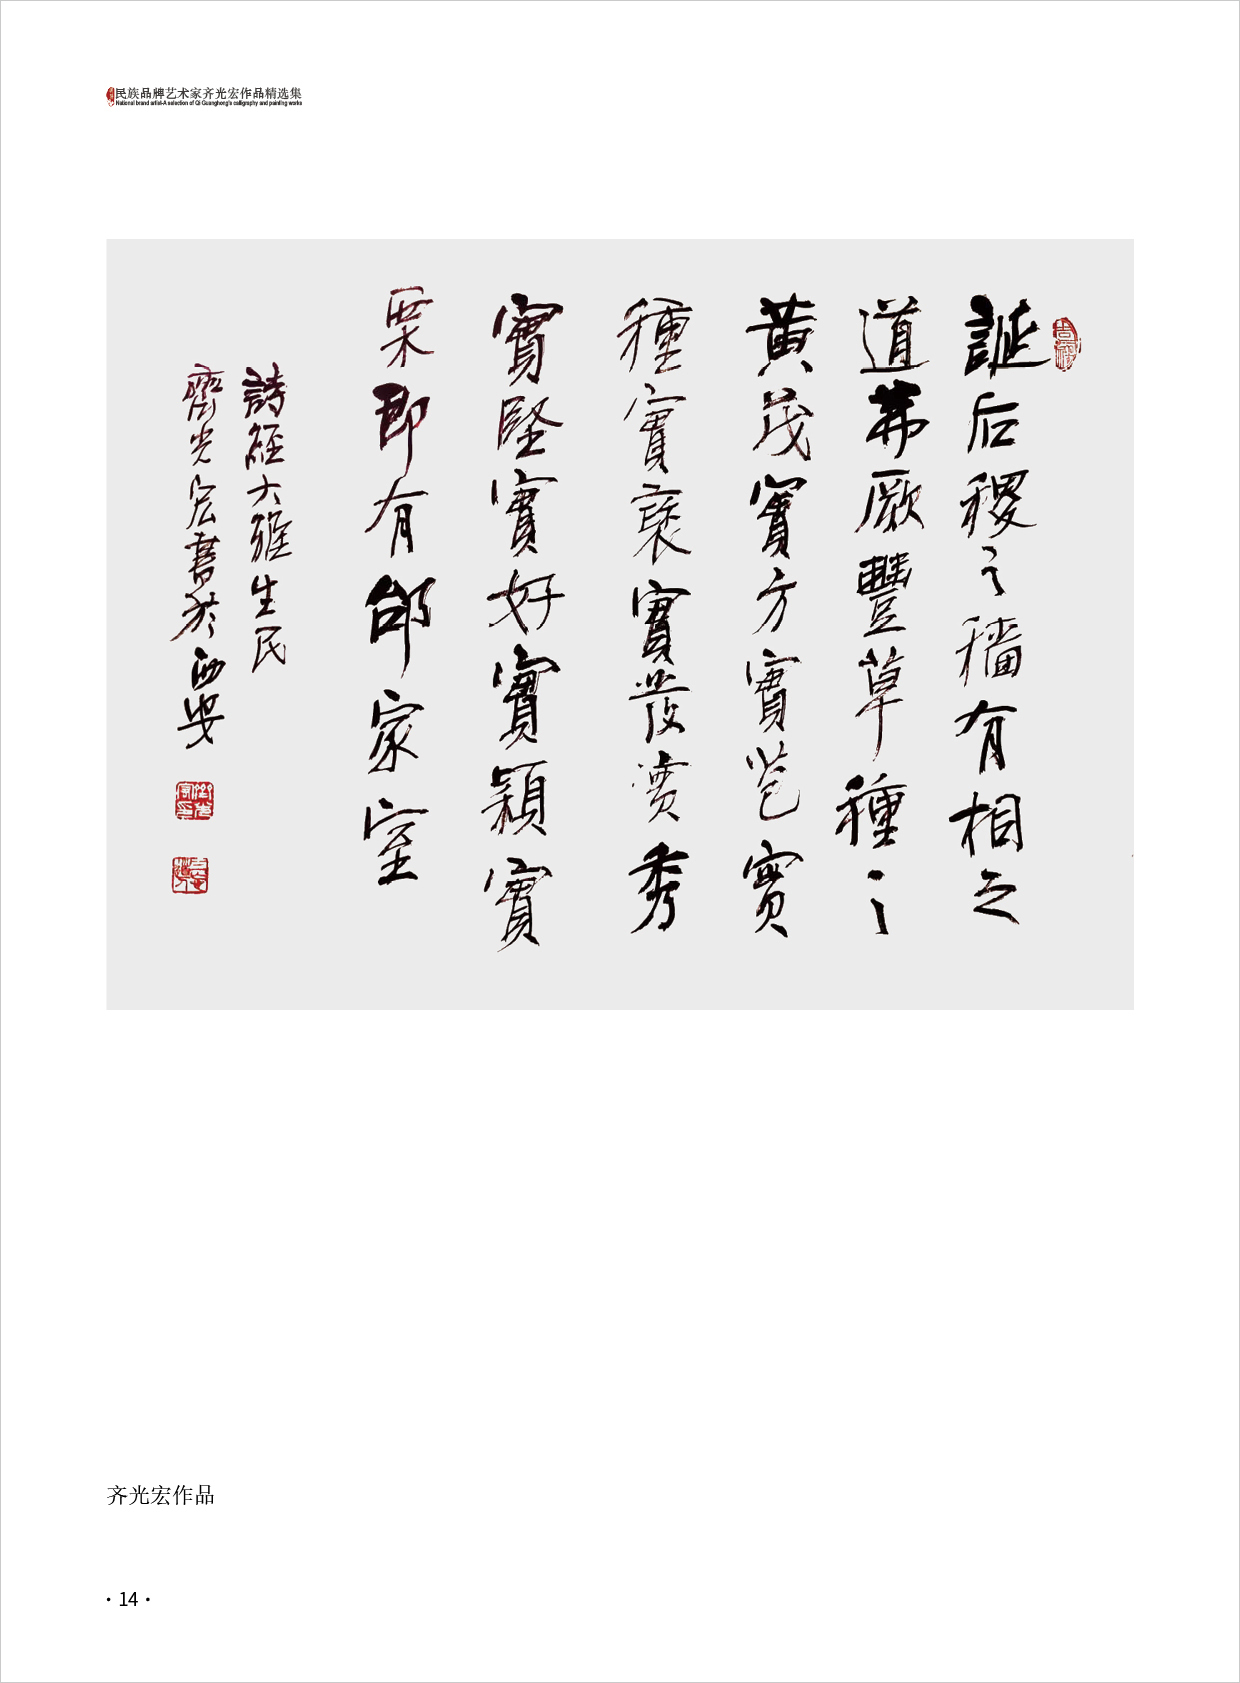 民族品牌艺术家齐光宏作品精选集
National brand artist-A selection of Qi Guanghong's calligraphy and painting works
誕后稷之穡有相之
道茀厥豐草種之
黃茂實方實苞實
種實襃實發實秀
實堅實好實穎實
栗即有邰家室
詩經大雅生民
齊光宏書於西安
齐光宏作品
· 14 ·